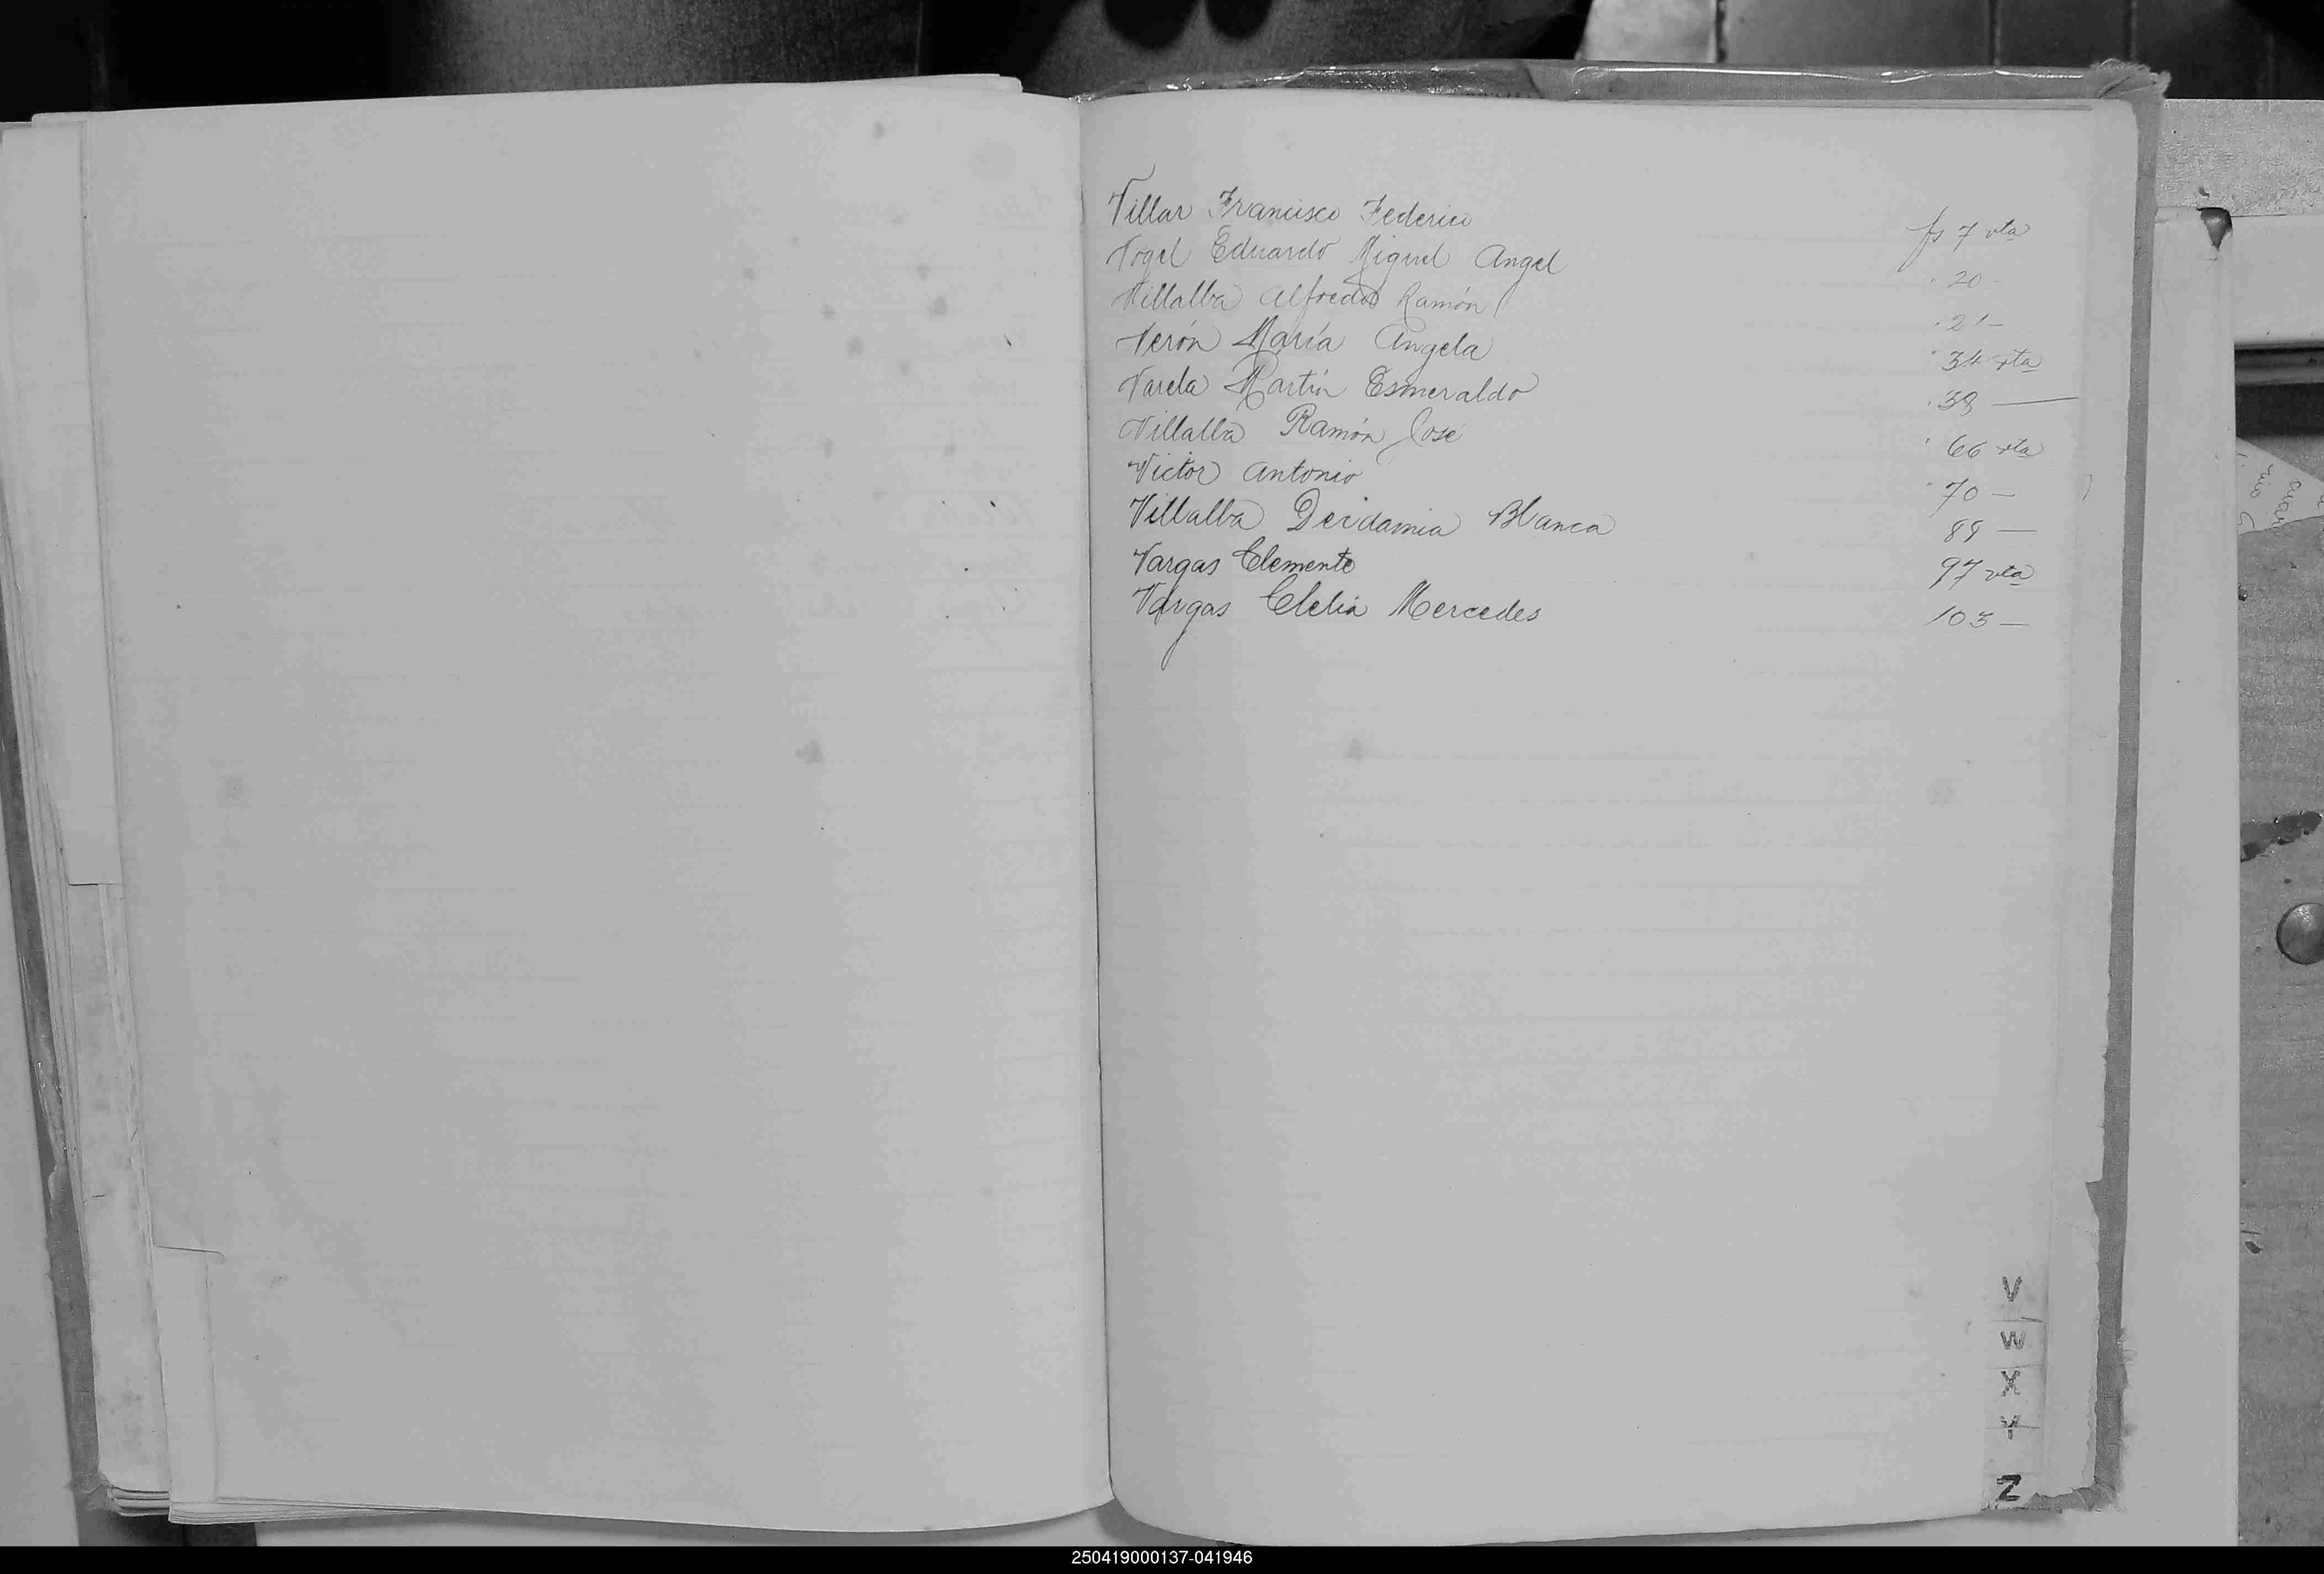 Villar Francisco Federico fs 7 vta
Vogel Eduardo Miguel Angel " 20
Villalba Alfredo Ramón " 21 —
Verón María Angela " 34 vta
Varela Martín Esmeraldo " 38 —
Villalba Ramón José " 66 vta
Victor Antonio " 70 —
Villalba Deidamia Blanca 89 —
Vargas Clemente 97 vta
Vargas Clelia Mercedes 103 —
V
W
X
Y
Z
250419000137-041946